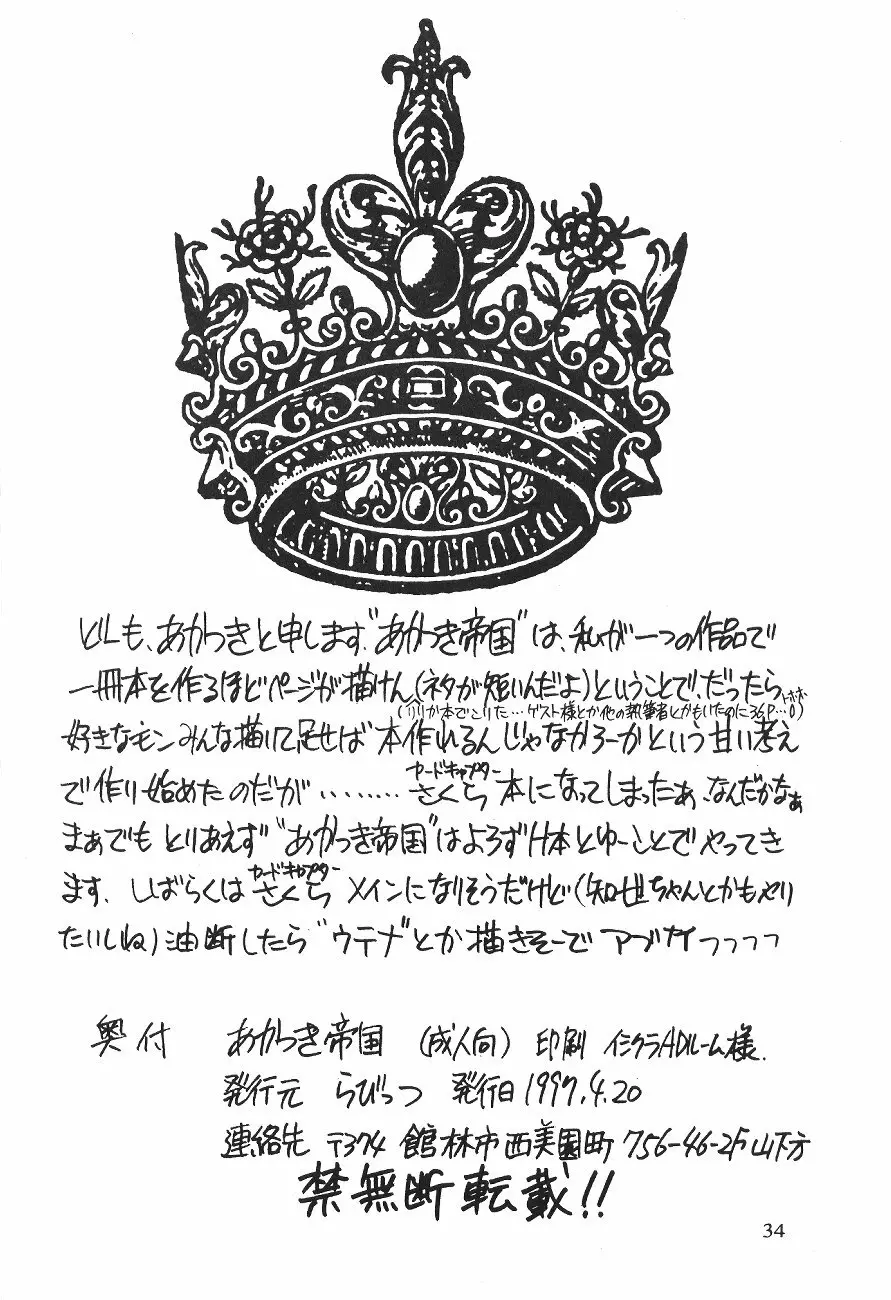 ども、あかつきと申します。"あかつき帝国"は、私が一つの作品で
一冊本を作るほどページが描けん(ネタが短いんだよ)ということで、だったら
(リリカ本でこりた…ゲスト様とか他の執筆者とかもいたのに36P…0)トホホ
好きなモンみんな描いて足せば 本作れるんじゃなかろーかという甘い考え
で作り始めたのだが ‥‥‥‥ さくら 本になってしまったあ、なんだかなぁ
カードキャプター
まぁでも とりあえず "あかつき帝国"はよろずH本とゆーことで やってき
ます. しばらくは さくら メインになりそうだけど(知世ちゃんとかもやり
カードキャプター
たいしね) 油断したら "ウテナ"とか描きそーで アブナイっっっっ
奥付 あかつき帝国 (成人向) 印刷 イシクラADルーム様.
発行元 らびっつ 発行日 1997.4.20
連絡先 〒374 館林市西美園町 756-46-2F 山下方
禁無断転載!!
34